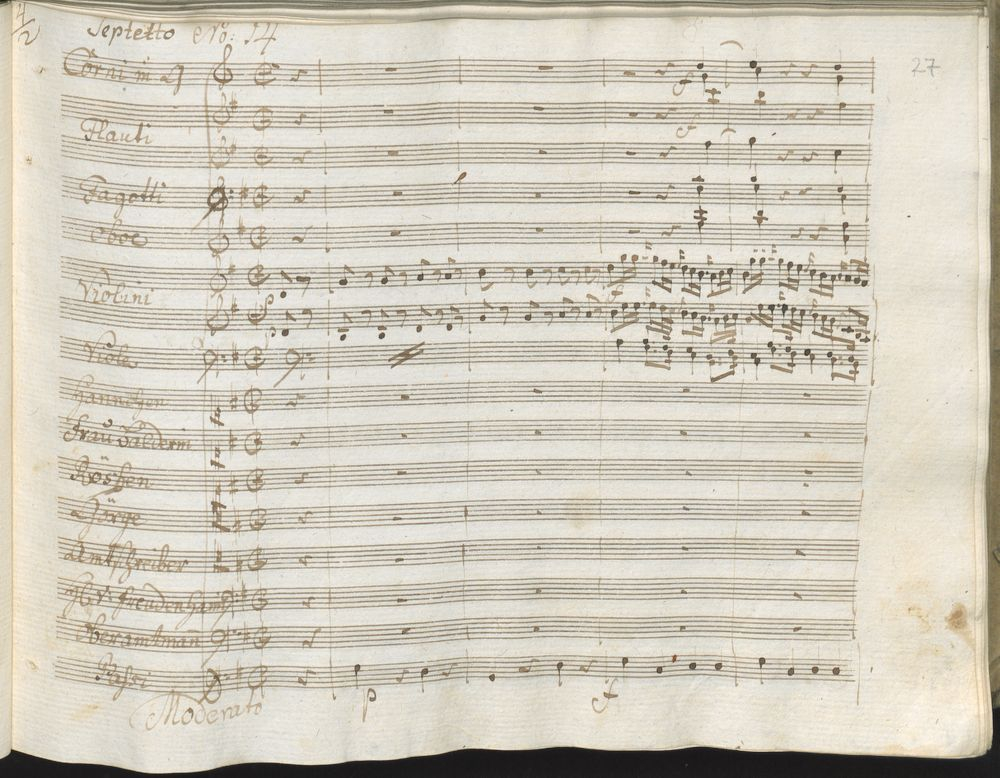 4/2
Septetto No: 14
27
Corni in D
Flauti
f
f
Fagotti
Oboe
Violini
p
p
Viola
Hannchen
Frau
Röschen
Jörge
Amtschreiber
H: v: Freudenhaim
Oberamtmañ
Bassi
p
f
Moderato